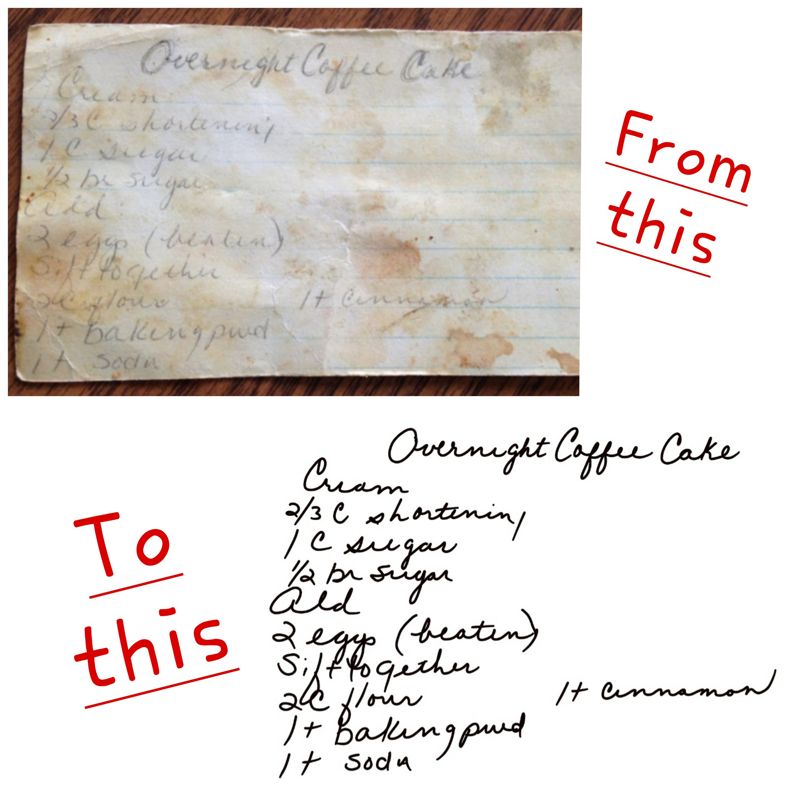 Overnight Coffee Cake
Cream
2/3 C shortening
1 C sugar
1/2 br sugar
add
2 eggs (beaten)
Sift together
2C flour 1t cinnamon
1t baking pwd
1t soda
From
this
Overnight Coffee Cake
Cream
2/3 C shortening
1 C sugar
1/2 br sugar
Add
2 eggs (beaten)
Sift together
2C flour 1t cinnamon
1t baking pwd
1t soda
To
this